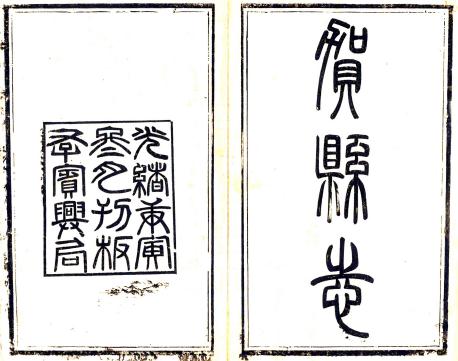 賀縣志
光緒庚寅
參月刊板
存賓興局